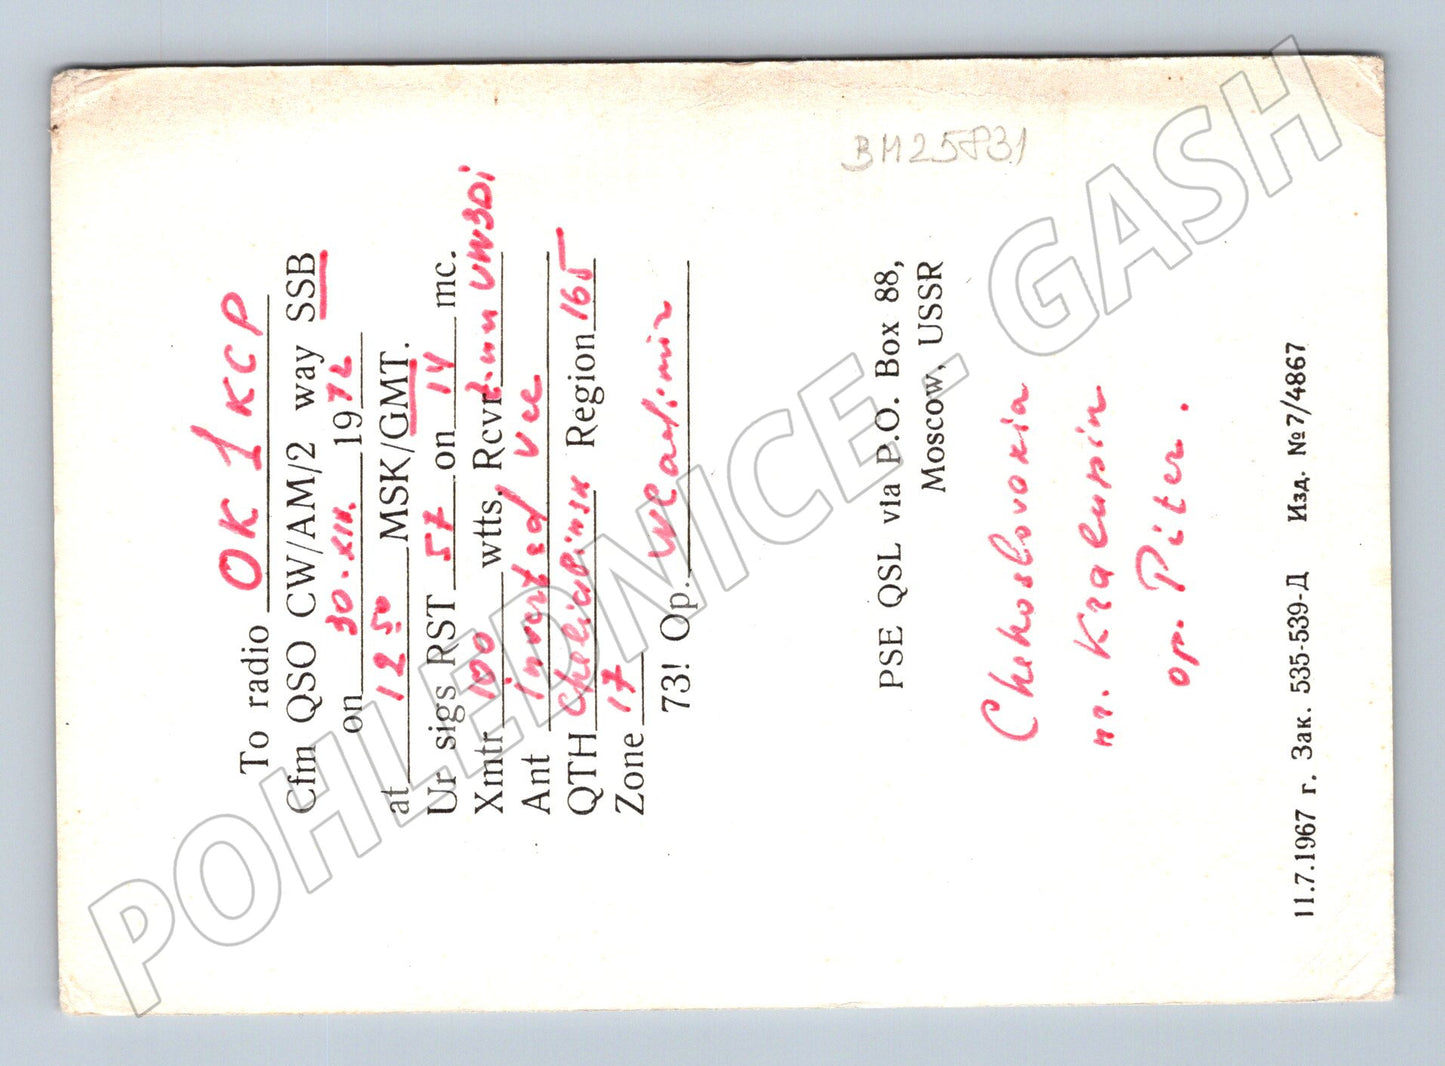 To radio OK 1 KCP
Cfm QSO CW/AM/2 way SSB
on 30.XII. 1972
at 12 50 MSK/GMT.
Ur sigs RST 57 on 14 mc.
Xmtr 100 wtts. Rcvr UW3Di
Ant inverted Vee
QTH Cheliabinsk Region 165
Zone 17
73! Op. Wladimir
PSE QSL via P.O. Box 88,
Moscow, USSR
Chehoslovoxia
op. Piter.
11.7.1967 г. Зак. 535-539-Д Изд. №7/4867
BM25831
POHLEDNICE - GASH